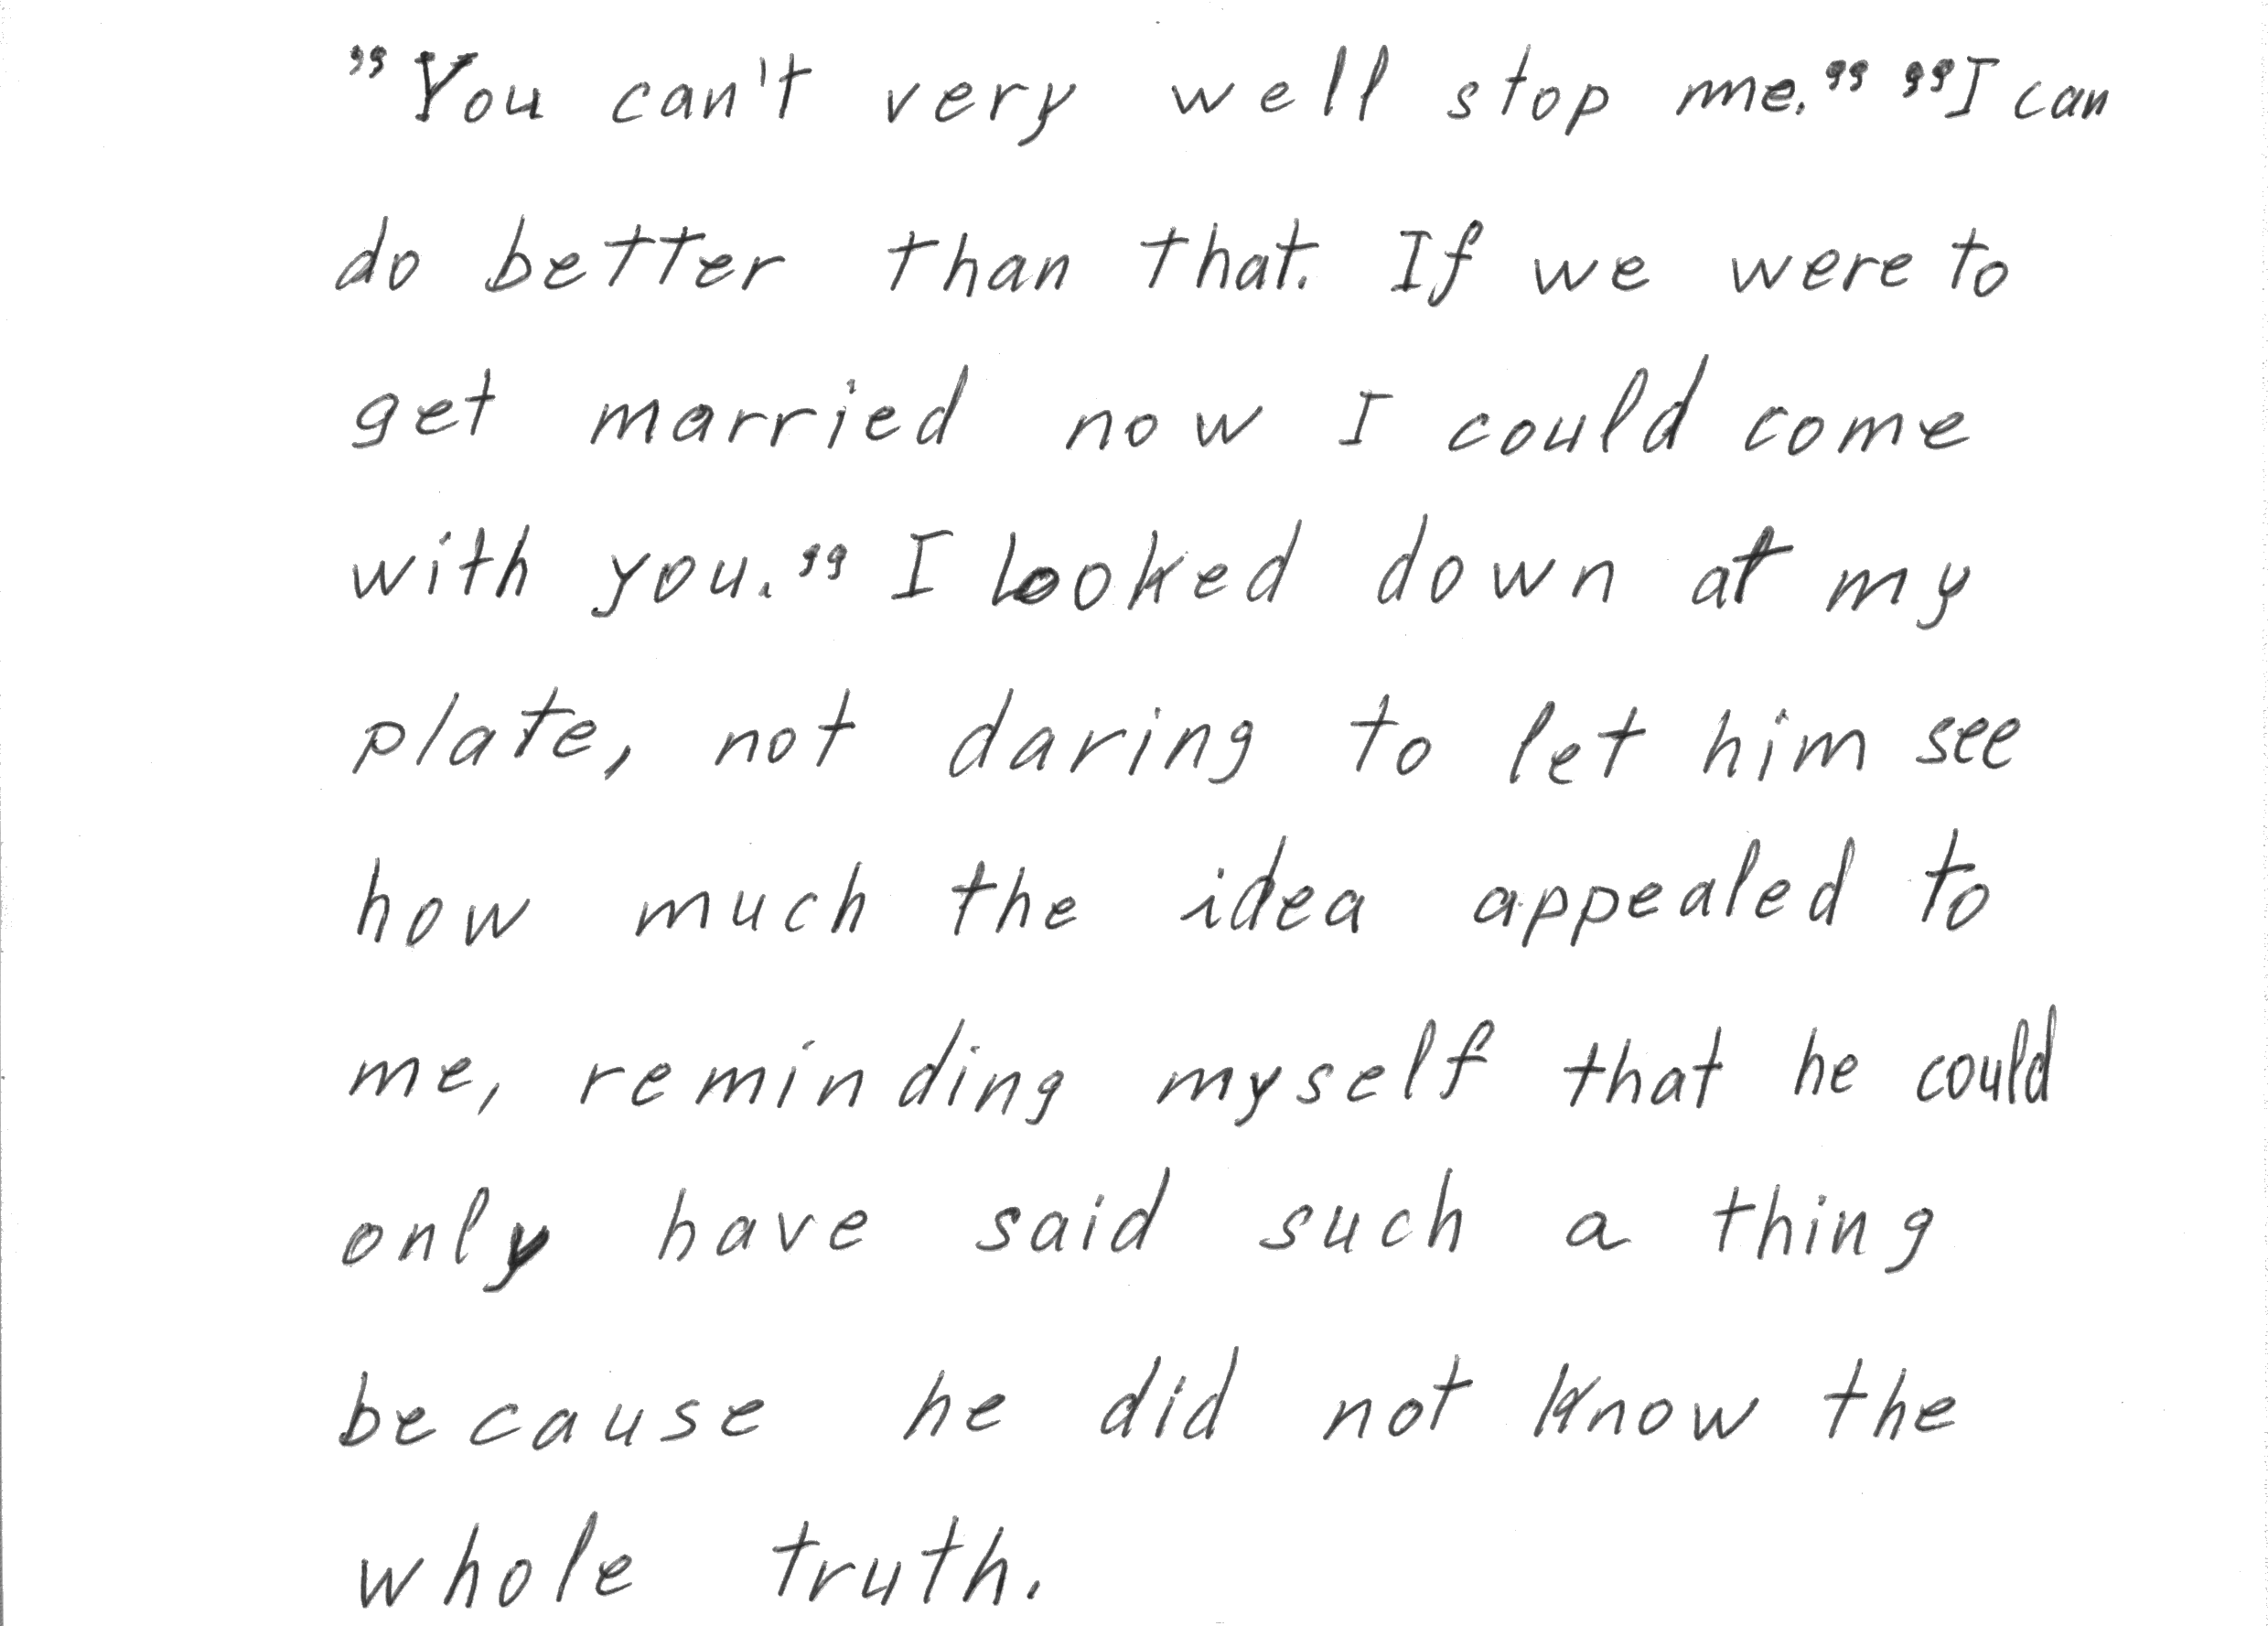 ”You can't very well stop me.” ”I can
do better than that. If we were to
get married now I could come
with you.” I looked down at my
plate, not daring to let him see
how much the idea appealed to
me, reminding myself that he could
only have said such a thing
because he did not know the
whole truth.